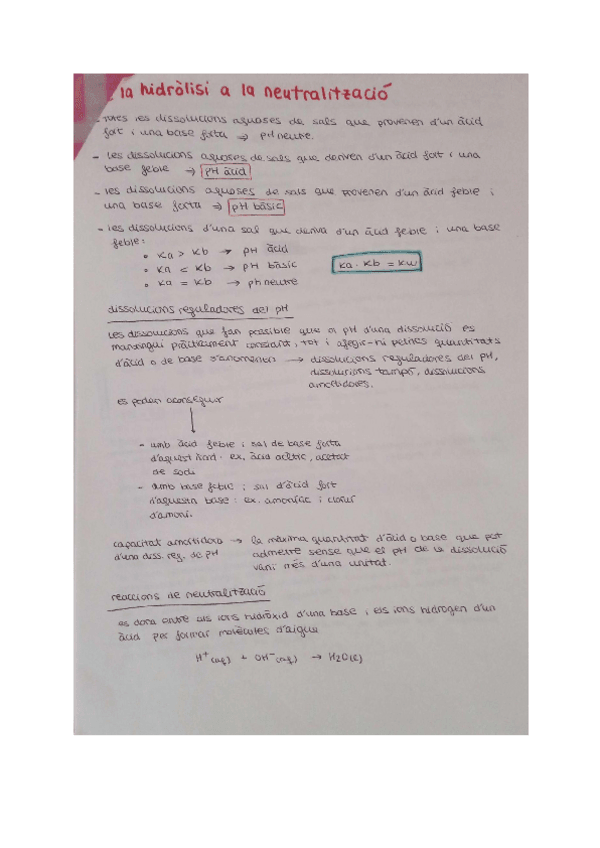 la hidròlisi a la neutralització
- totes les dissolucions aquoses de sals que provenen d'un àcid
fort i una base forta → pH neutre.
- les dissolucions aquoses de sals que deriven d'un àcid fort i una
base feble → pH àcid
- les dissolucions aquoses de sals que provenen d'un àcid feble i
una base forta → pH bàsic
- les dissolucions d'una sal que deriva d'un àcid feble i una base
feble:
• Ka > Kb → pH àcid
• Ka < Kb → pH bàsic
Ka · Kb = Kw
• Ka = Kb → ph neutre
dissolucions reguladores del pH
Les dissolucions que fan possible que el pH d'una dissolució es
mantingui pràcticament constant, tot i afegir-hi petites quantitats
d'àcid o de base s'anomenen → dissolucions reguladores del pH,
dissolucions tampó, dissolucions
amortidores.
es poden aconseguir
- amb àcid feble i sal de base forta
d'aquest àcid. ex, àcid acètic, acetat
de sodi
- amb base feble i sal d'àcid fort
d'aquesta base: ex. amoníac i clorur
d'amoni.
capacitat amortidora → la màxima quantitat d'àcid o base que pot
d'una diss. reg. de pH admetre sense que el pH de la dissolució
variï més d'una unitat.
reaccions de neutralització
es dona entre els ions hidròxid d'una base i els ions hidrogen d'un
àcid per formar molècules d'aigua
H⁺(aq) + OH⁻(aq) → H2O(l)